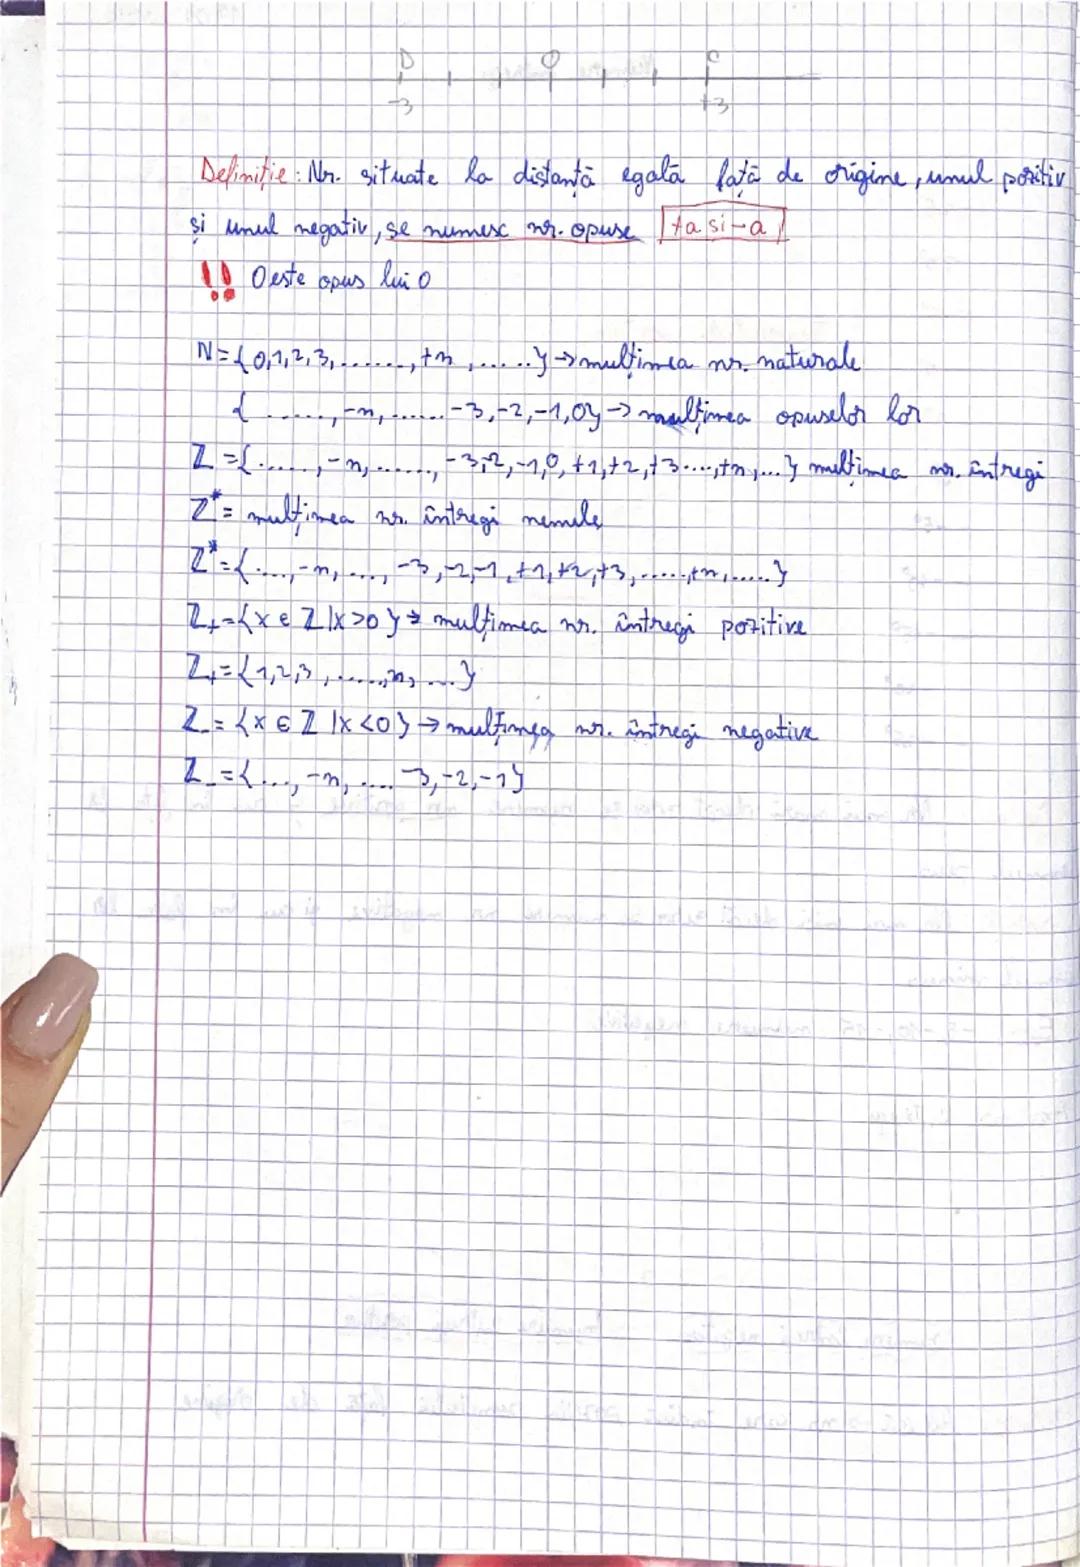 D O C
-3 +3
Definiție: Nr. situate la distanță egală față de origine, unul pozitiv
și unul negativ, se numesc nr. opuse +a si -a
!! 0 este opus lui 0
N={0,1,2,3,.......,+n,......} → mulțimea nr. naturale
{......,-n,......-3,-2,-1,0} → mulțimea opuselor lor
Z={.....,-n,......,-3,-2,-1,0,+1,+2,+3....,+n,...} mulțimea nr. întregi
Z*= mulțimea nr. întregi nenule
Z*={....,-n,...,-3,-2,-1,+1,+2,+3,......,+n,.....}
Z+={x∈Z|x>0} → mulțimea nr. întregi pozitive
Z+={1,2,3,......,n,...}
Z-={x∈Z|x<0} → mulțimea nr. întregi negative
Z-={...,-n,....-3,-2,-1}